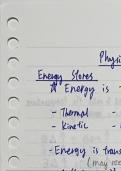 Physi
Energy Stores
Energy is
- Thermal -
- Kinetic -
- Energy is trans
(may